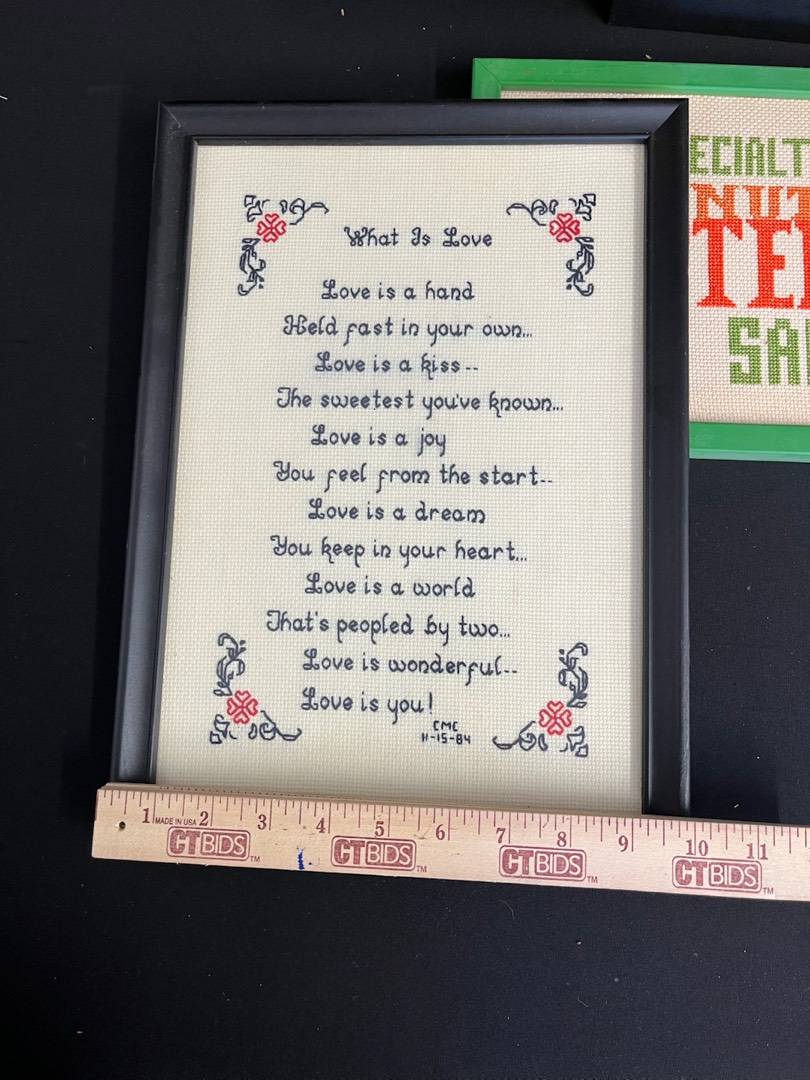 What Is Love
Love is a hand
Held fast in your own...
Love is a kiss--
The sweetest you've known...
Love is a joy
You feel from the start--
Love is a dream
You keep in your heart...
Love is a world
That's peopled by two...
Love is wonderful--
Love is you!
CMC
11-15-84
ECIALT
NUT
TE
SA
1 2 3 4 5 6 7 8 9 10 11
MADE IN USA
CTBIDS TM CTBIDS TM CTBIDS TM CTBIDS TM